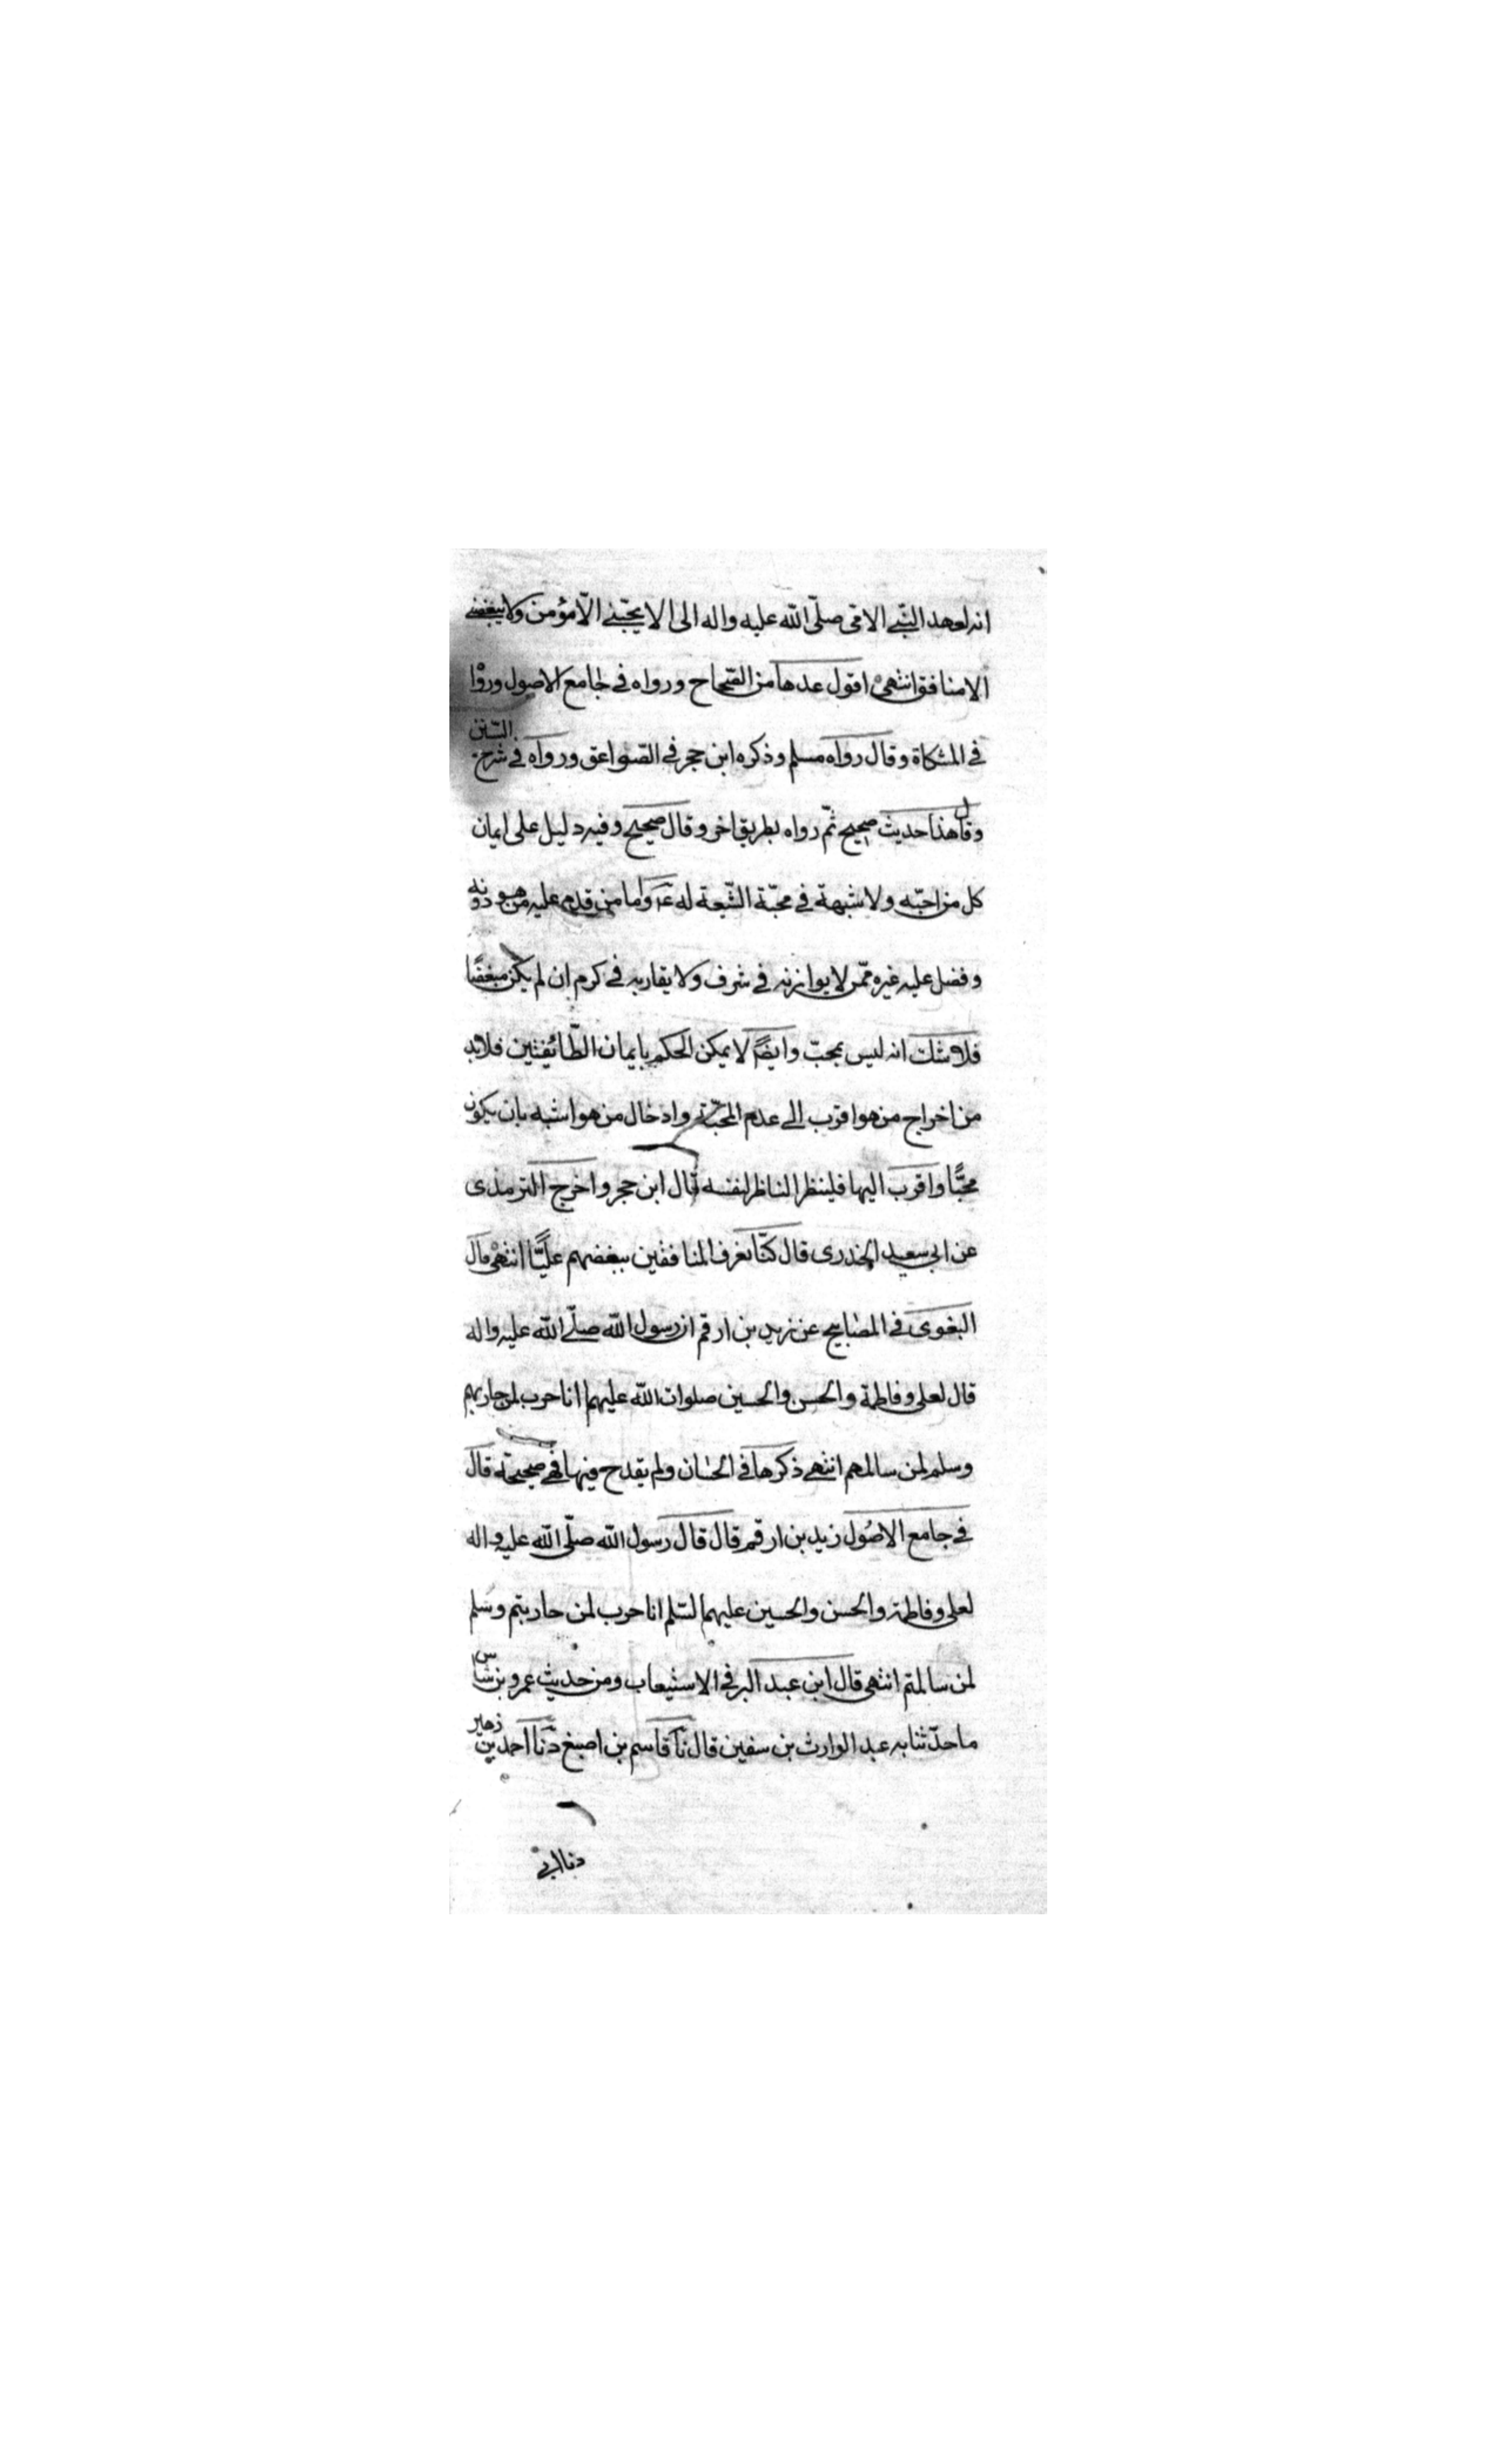 انه لعهد النّبي الامّي صلّى الله عليه واله الى الا يحبّني الّا مؤمن ولا يبغضني
الا منافق انتهى اقول عدها من الصّحاح ورواه في جامع الاصول وروٰا
في المشكاة وقال رواه مسلم وذكره ابن حجر في الصّواعق ورواه في شرح السّنن
وقال هذا حديث صحيح ثمّ رواه بطريق اخر وقال صحيح وفيه دليل على ايمان
كل من احبّه ولا شبهة في محبّة الشّيعة له ع وامامن قدم عليه من هو دونه
وفضل عليه غيره ممّن لا يوازنه في شرف ولا يقاربه في كرم ان لم يكن مبغضًا
فلا شك انه ليس بمحبّ وايضًا لا يمكن الحكم بايمان الطّائفتين فلابد
من اخراج من هو اقرب الى عدم المحبّة وادخال من هو اشبه بان يكون
محبًّا واقرب اليها فلينظر الناظر لنفسه قال ابن حجر واخرج الترمذى
عن ابي سعيد الخدرى قال كنّا نعرف المنافقين ببغضهم عليًّا انتهى قال
البغوى في المصابيح عن زيد بن ارقم ان رسول الله صلّى الله عليه واله
قال لعلى وفاطمة والحسن والحسين صلوات الله عليهم انا حرب لمن حاربهم
وسلم لمن سالمهم انتهى ذكرها في الحسان ولم يقدح فيها فهي صحيحة قال
في جامع الاصُول زيد بن ارقم قال قال رسول الله صلّى الله عليه واله
لعلى وفاطمة والحسن والحسين عليهم السّلم انا حرب لمن حاربتم وسَلم
لمن سالمتم انتهى قال ابن عبد البر في الاستيعاب ومن حديث عمرو بن شاس
ما حدّثنا به عبد الوارث بن سفين قال نا قاسم بن اصبغ دنا احمد بن زهير
دنا ابي